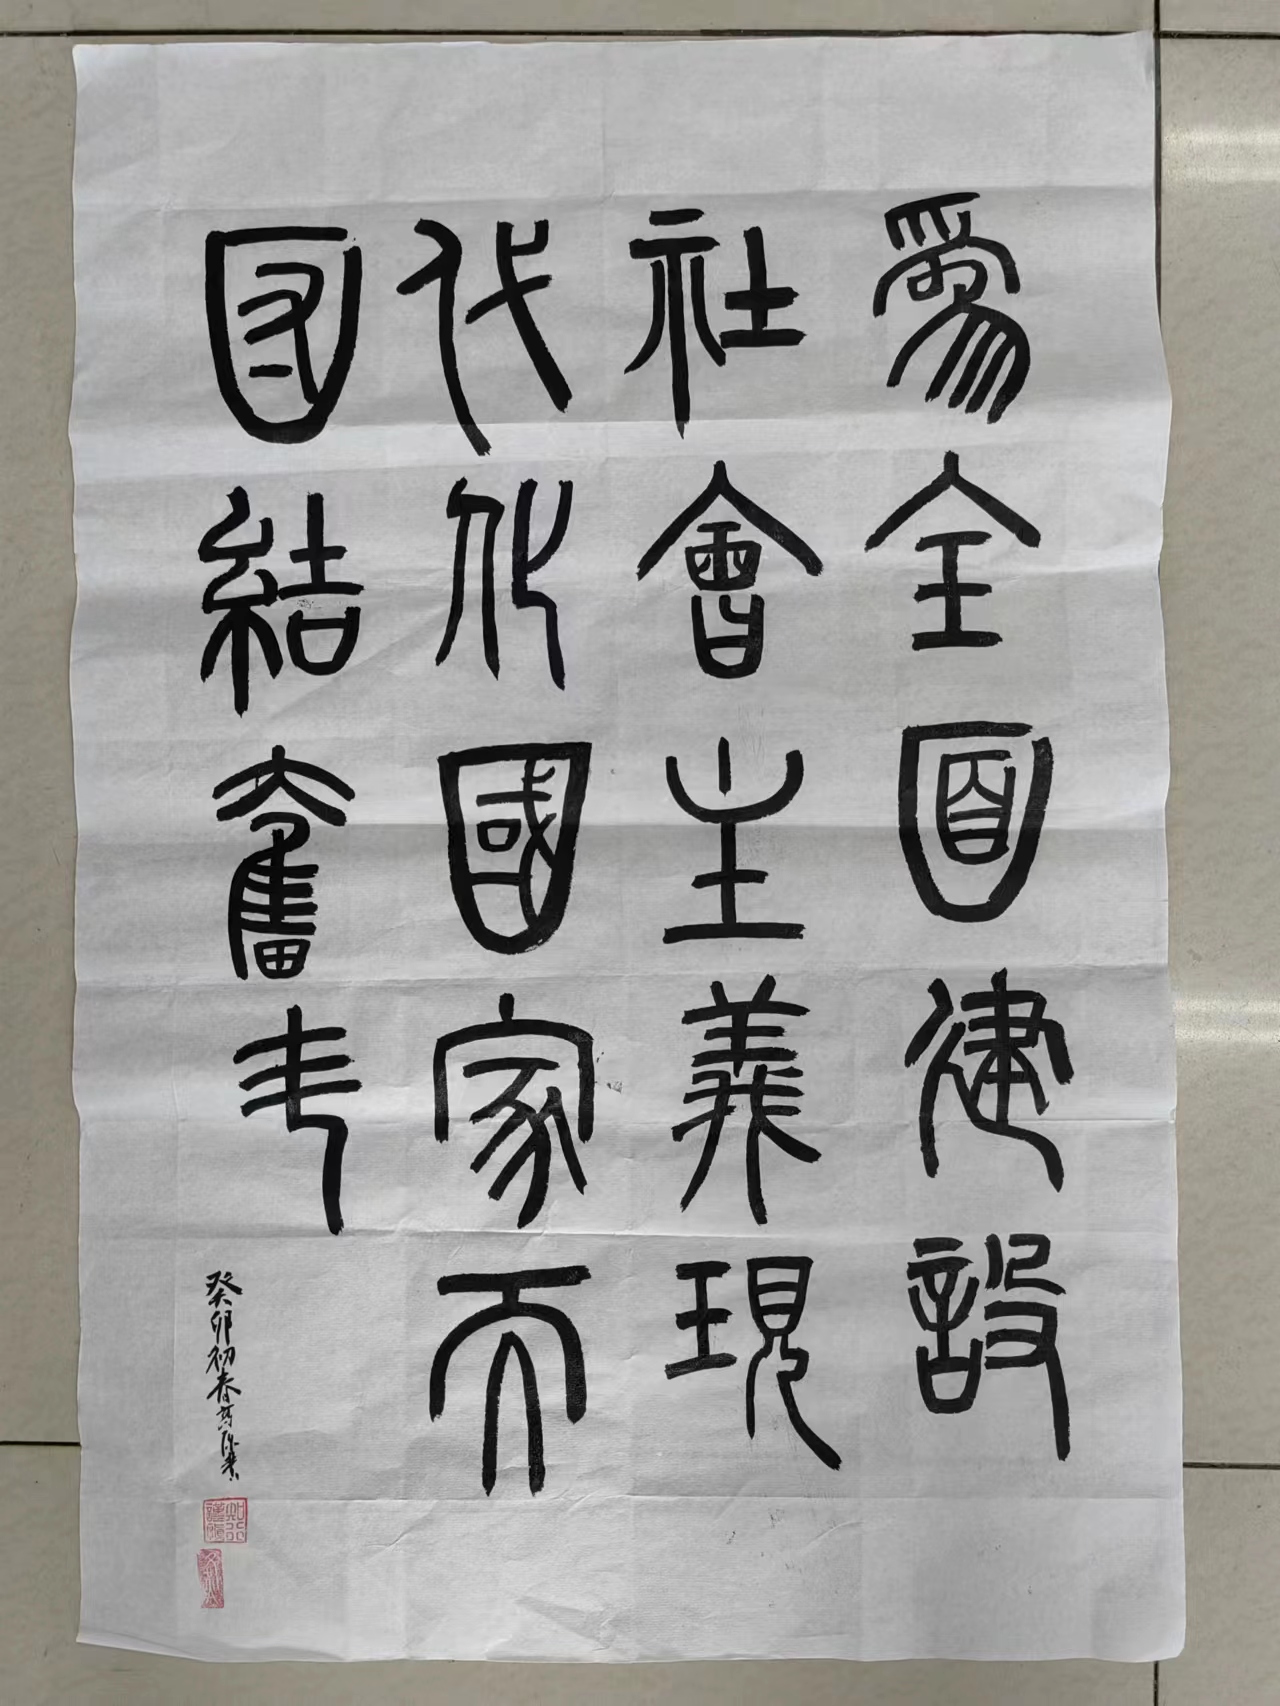 爲全面建設
社會主義現
代化國家而
團結奮鬥
癸卯初春